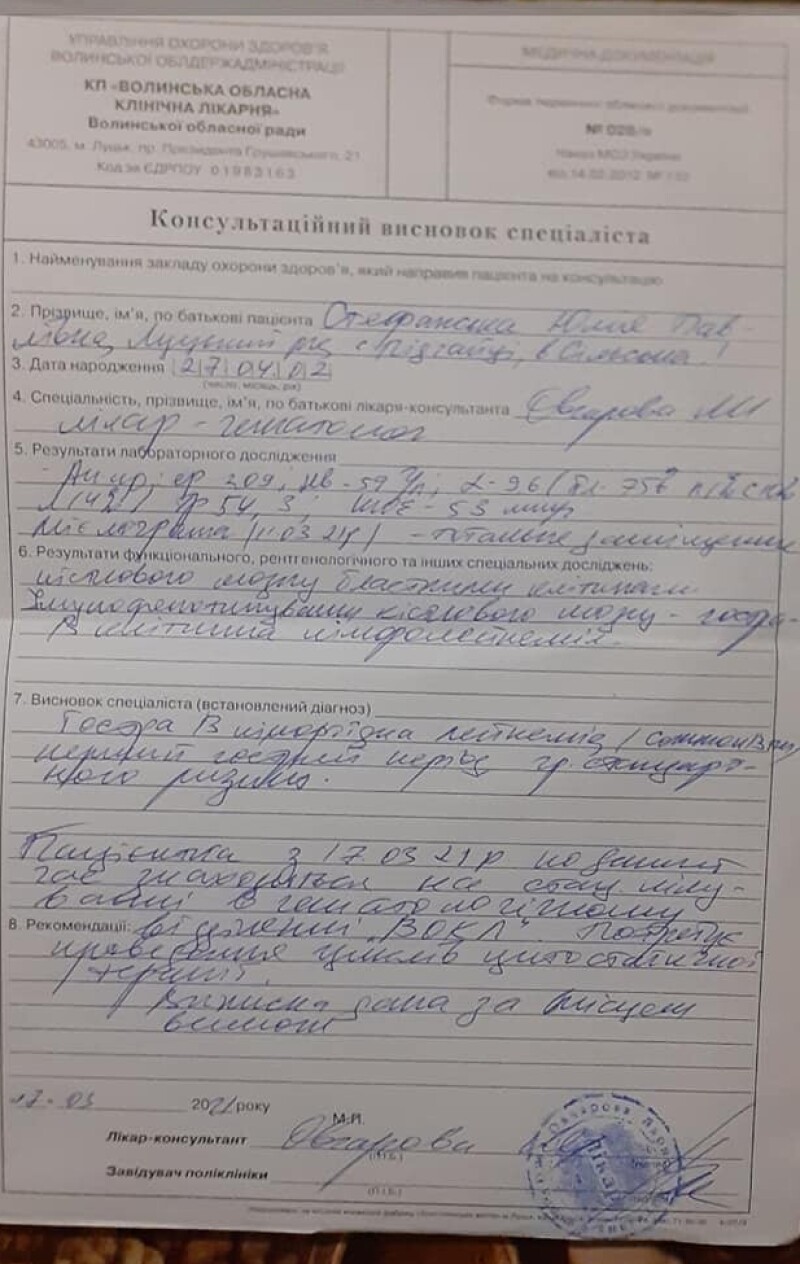 УПРАВЛІННЯ ОХОРОНИ ЗДОРОВ'Я
ВОЛИНСЬКОЇ ОБЛДЕРЖАДМІНІСТРАЦІЇ
КП «ВОЛИНСЬКА ОБЛАСНА
КЛІНІЧНА ЛІКАРНЯ»
Волинської обласної ради
43005, м. Луцьк, пр. Президента Грушевського, 21
Код за ЄДРПОУ 01983163
МЕДИЧНА ДОКУМЕНТАЦІЯ
Форма первинної облікової документації
№ 028/о
Наказ МОЗ України
від 14.02.2012 №
Консультаційний висновок спеціаліста
1. Найменування закладу охорони здоров'я, який направив пацієнта на консультацію
2. Прізвище, ім'я, по батькові пацієнта Стефанська Юлія Пав-
лівна, Луцький с Підгайці, в
3. Дата народження 27 04 02
(число, місяць, рік)
4. Спеціальність, прізвище, ім'я, по батькові лікаря-консультанта Овчарова
лікар - гематолог
5. Результати лабораторного дослідження
209, Нв - 59 г/л, L - 96
53 мм/г
Мієлограма (11 03 21р) - тотальне заміщення
6. Результати функціонального, рентгенологічного та інших спеціальних досліджень:
кісткового мозку бластними клітинами.
Імунофенотипування кісткового мозку - гостра
В клітинна лімфолейкемія.
7. Висновок спеціаліста (встановлений діагноз)
Гостра В лімфоїдна лейкемія /common B
перший гострий період гр. стандарт-
ного ризику.
Пацієнтка з 17 03 21р по даний
час знаходиться на стац ліку-
ванні в гематологічному
8. Рекомендації: відділенні "ВОКЛ". Потребує
проведення циклів цитостатичної
терапії.
Виписка дана за місцем
вимоги
17 - 03 2021 року
М.П.
Лікар-консультант Овчарова
(П.І.Б.)
Завідувач поліклініки
(П.І.Б.)
Овчарова
Лікар